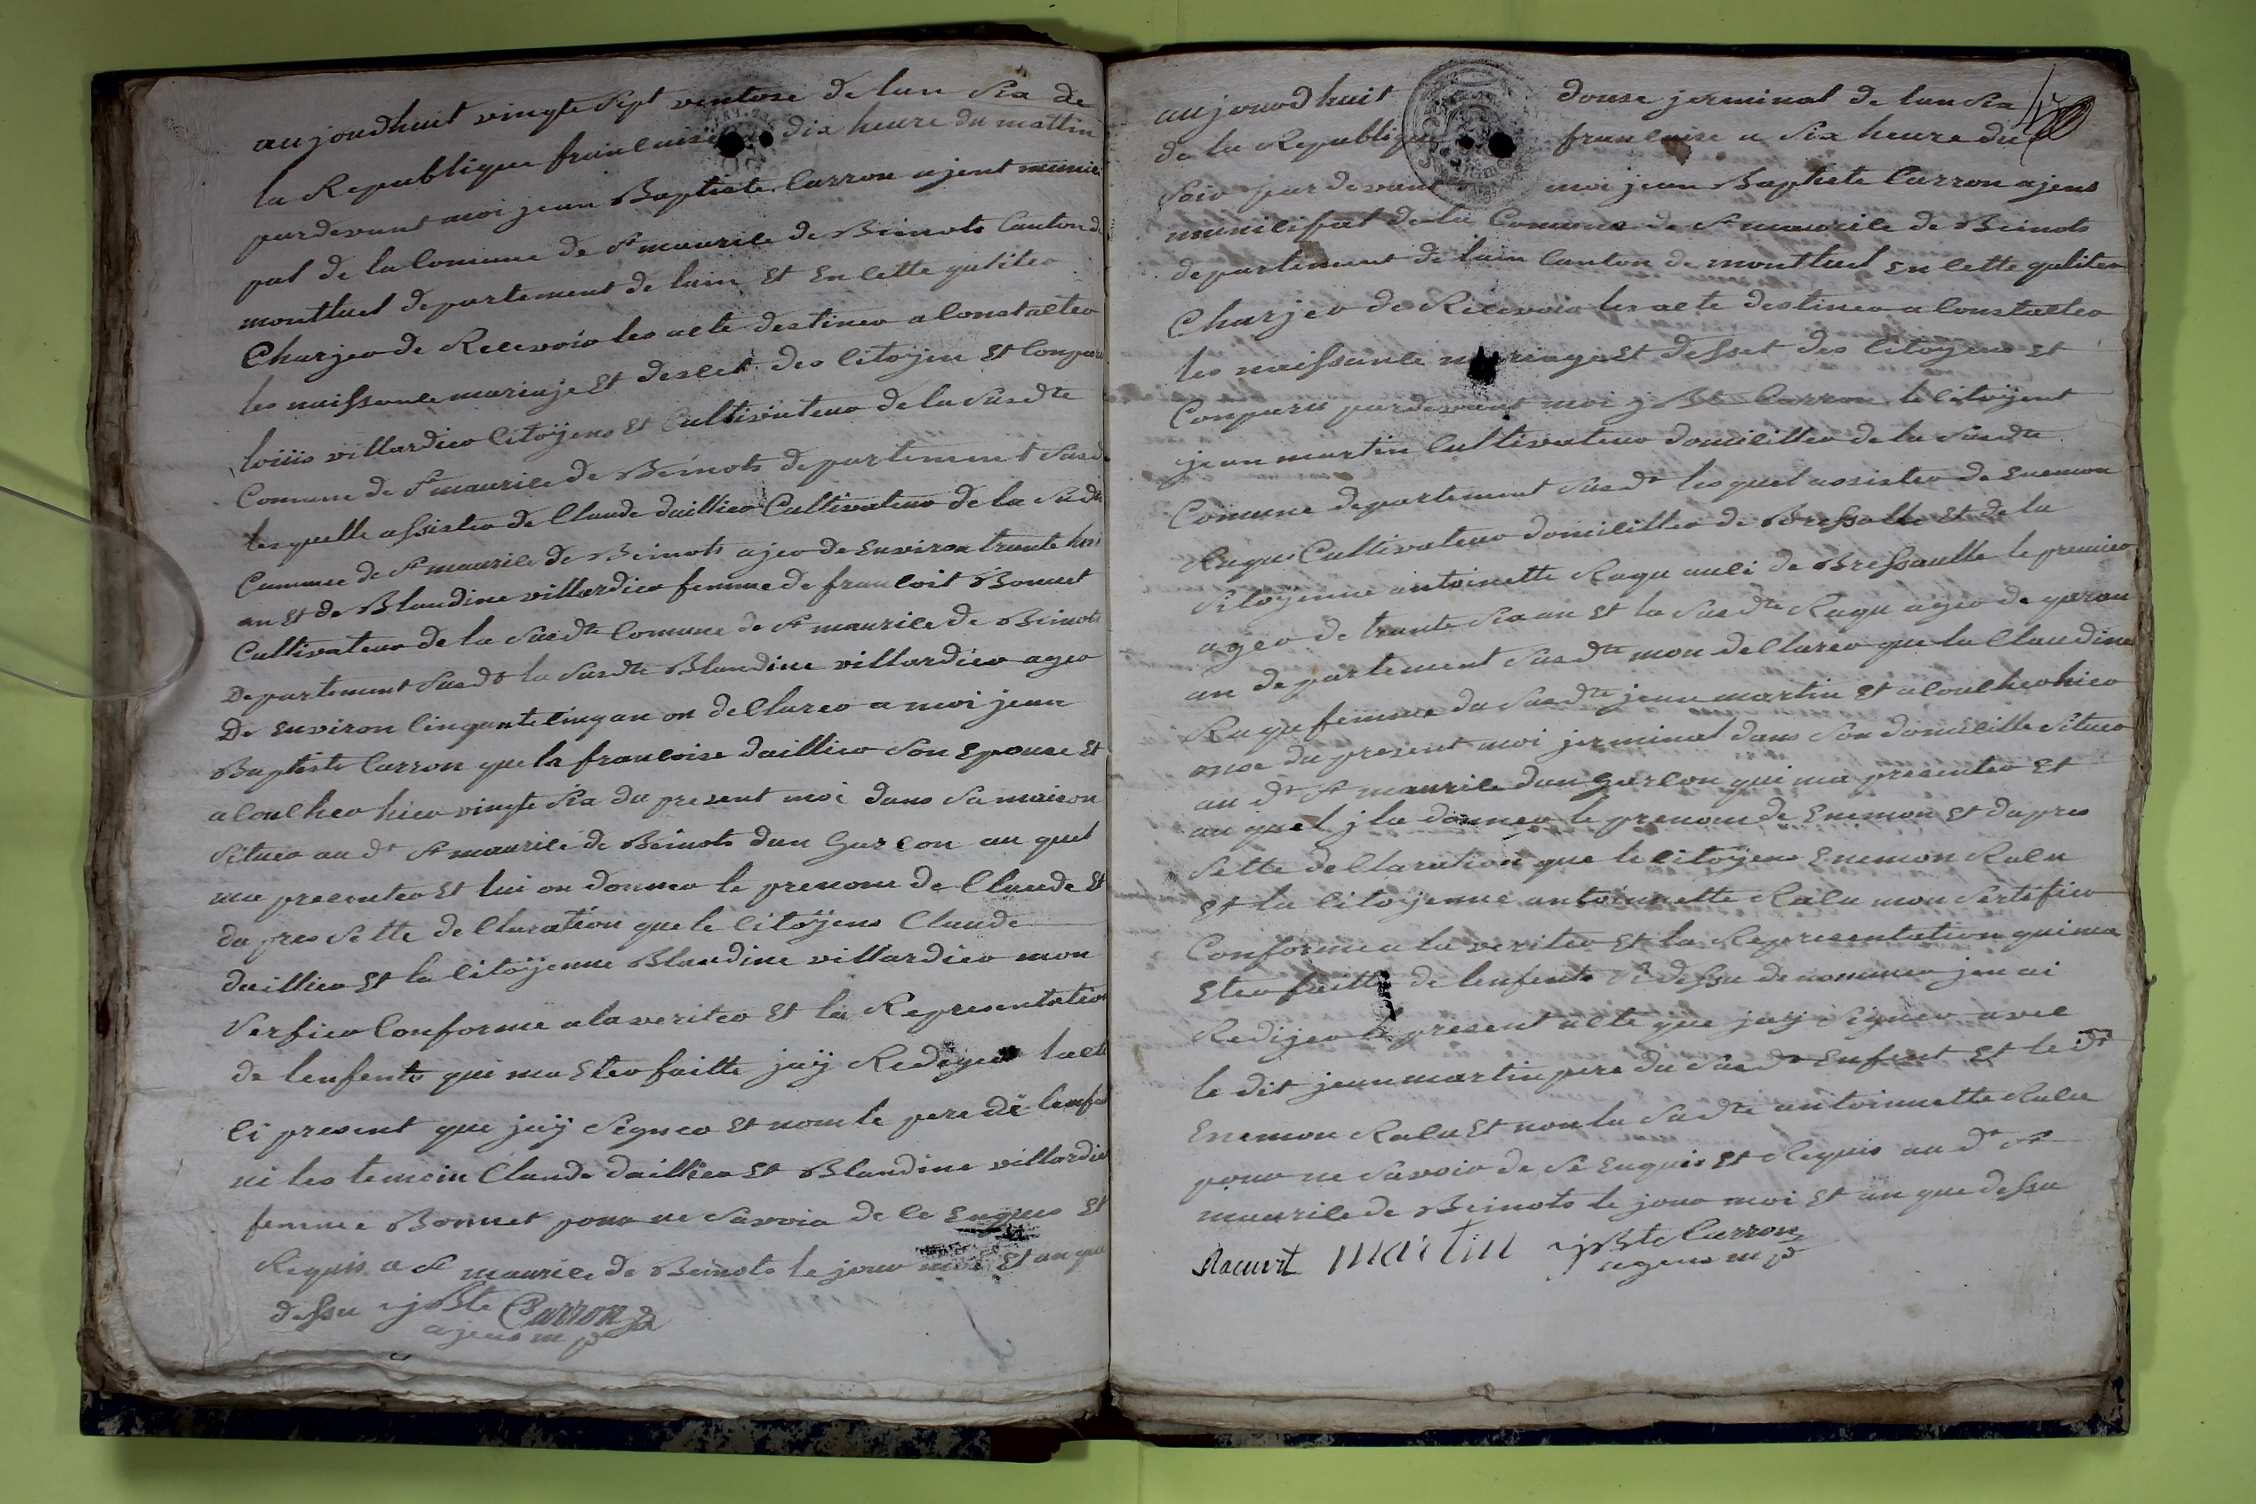 aujourdhuit vingte Sept ventose de lan Six de
la Republique francaise dix heure du mattin
pardevant moi jean Baptiste Carron ajent munici
pal de la Comune de St maurice de Beinots Canton d
montluel departement de lain Et En Cette qualiter
Charjer de Recevoir les acte destiner a Constatter
les naissance mariaje Et des citoyen Et Conparu
loüis villardier Citoÿens Et Cultivateur de la Susdte
Comune de St maurice de Beinots departement Susd
lesquelle assister de Claude daillier Cultivateur de la Sudte
Commune de St maurice de Beinots ajer de Environ trante
an Et de Blandine villardier femme de francoit Bonnet
Cultivateur de la Susdte Comune de St maurice de Beinots
Departement Susdt la Susdte Blandine villardier ager
De Environ Cinquante Cinq an on dellarer a moi jean
Baptiste Carron que la francoise daillier Son Epouse Et
acoulcher hier vingte Six du present moi dans Sa maison
Situer au dt St maurice de Beinots dun Garcon au quel
ma presenter Et lui on donner le prenom de Claude Et
dapres Sette dellaration que le Citoÿens Claude
daillier Et la Citoÿenne Blandine villardier mon
Verfier Conforme a la veriter Et la Representation
de lenfents qui ma Eter faitte jaÿ Rediger lacte
Ci present que jaÿ Signer Et nom le pere de lenf
ni les temoin Claude daillier Et Blandine villardie
femme Bonnet pour ne Savoir de Ce Enquis Et
Requis a St maurice de Beinots le jour moi Et an que
dessu jBte Carron
ajens m p
aujourdhuit douse jerminal de lan Six
de la Republique francaise a Six heure du
Soir par devant moi jean Baptiste Carron ajens
municipal de la Comune de St maurice de Beinots
departement de lain Canton de montluel En Cette qualiter
Charjer de Recevoir les acte destiner a Constatter
les naissance mariage Et desset des Citoyens Et
Conparu pardevant moi j Bte Carron le Citoÿent
jean martin Cultivateur domicillier de la Susdte
Comune departement Susdt lesquel assister de Enemon
Raqu Cultivateur domicillier de Bressolle Et de la
Sitoyenne antoinette Raqu auci de Bressaulle le premier
ager de trante Six an Et la Susdte Raqu ager de
an departement Susdte mon dellarer que la Claudine
Raqu femme du Susdte jean martin Et a Coulcher hier
onse du present moi jerminal dans Son domicille Situer
au dt St maurice dun Garcon qui ma presenter Et
au quel j la donner le prenom de Enemon Et dapres
Sette dellaration que le Citoÿens Enemon Racu
Et la Citoyenne antoinette Racu mon Sertifier
Conforme a la veriter Et la Representation qui ma
Eter faitte de lenfents Si dessu denommer jen ai
Redijer le present acte que jaÿ Signer avec
le dit jean martin pere du Susdt Enfent Et le dt
Enemon Racu Et non la Sudte antoinnette Racu
pour ne Savoir de Se Enquis Et Requis au dt St
maurice de Beinots le jour moi Et an que dessu
Racurt martin jBte Carron
agens m p